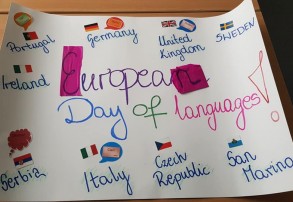 Portugal
Germany
United
Kingdom
SWEDEN
Ireland
European
Day of languages!
Serbia
Italy
Czech
Republic
San
Marino